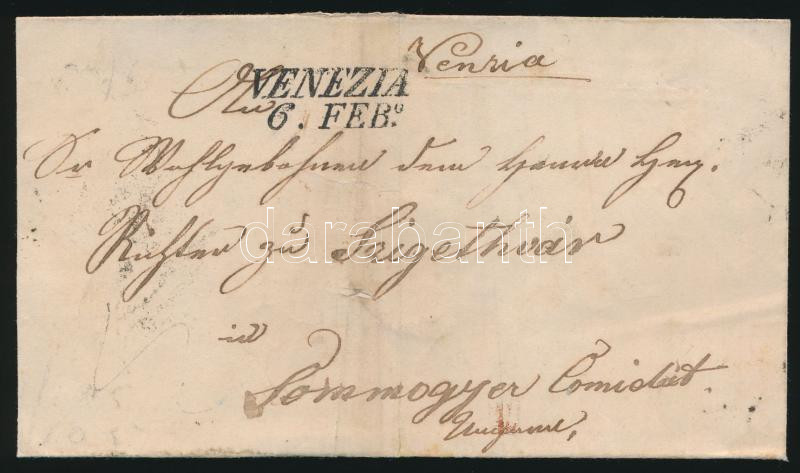 Venzia
VENEZIA
6. FEBº.
An
Sr Wohlgebohren dem Herrn Herr.
Richter zu Szigethvár
in
Sommogyer Comidat.
Ungarn.
darabanth